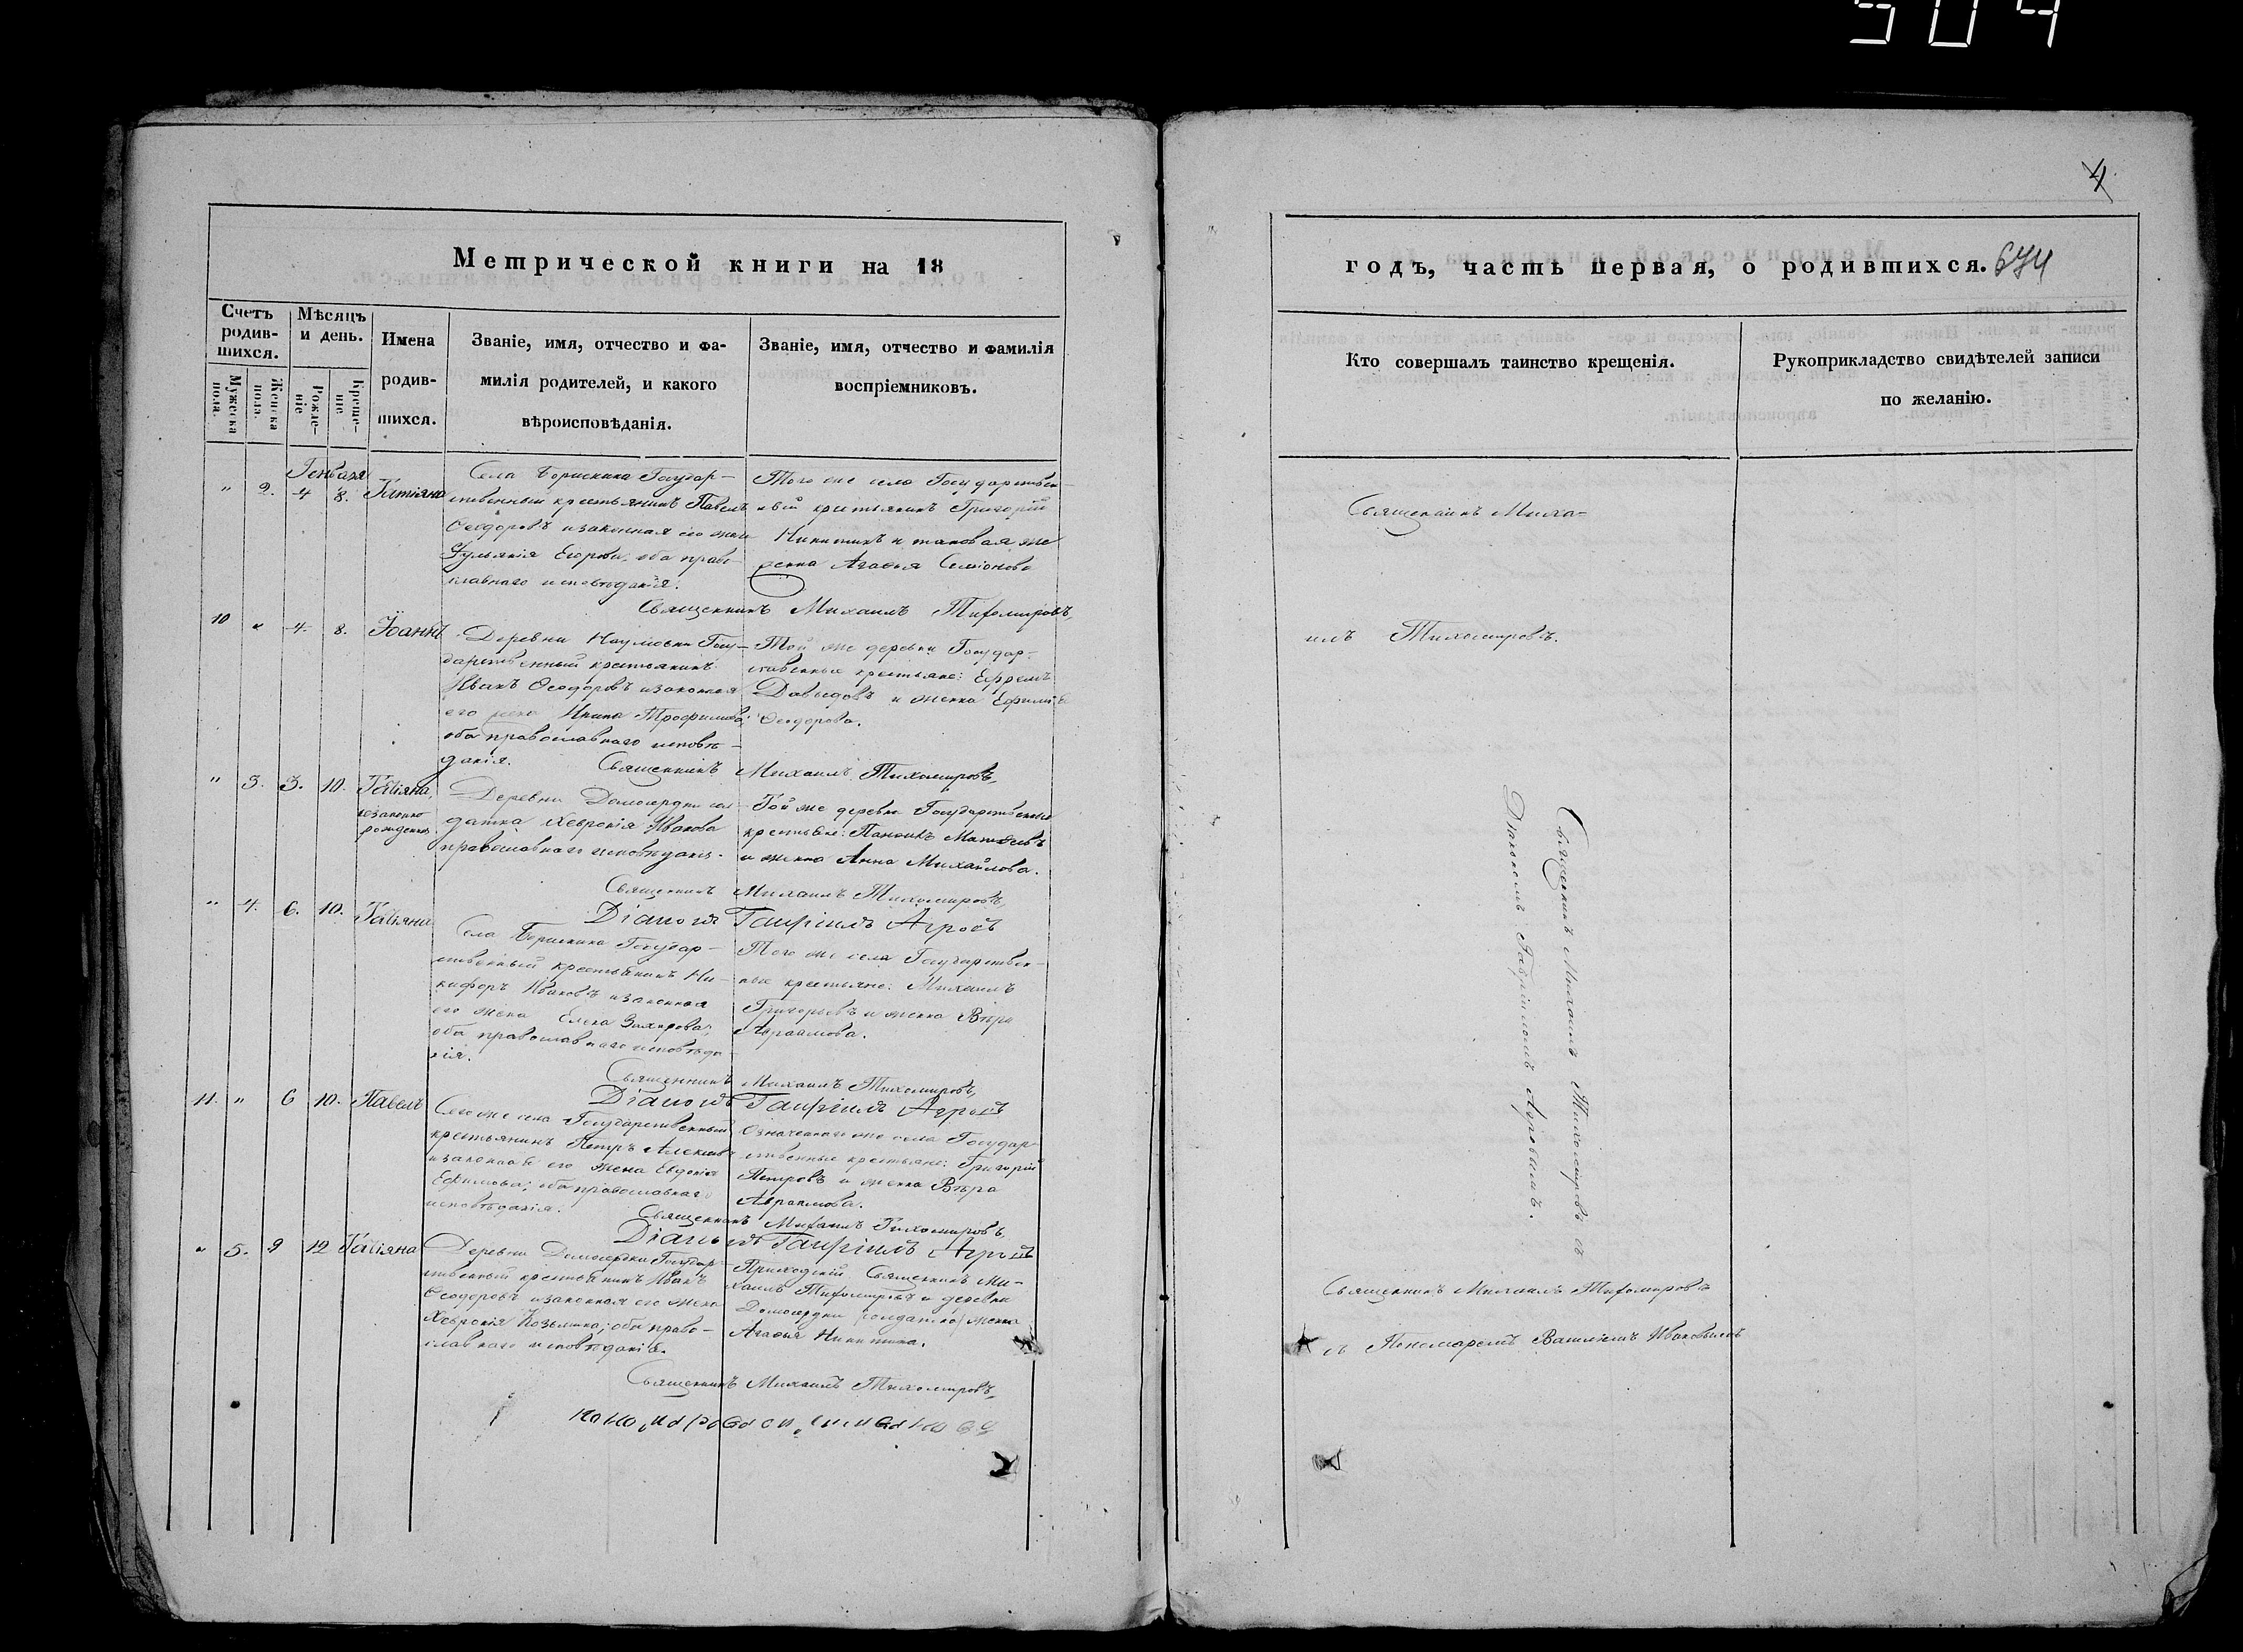 504
4
Метрической книги на 18
годъ, часть первая, о родившихся. 674
Счетъ родив-шихся.
Мужеска пола.
Женска пола.
Мѣсяцъ и день.
Рожде-ніе
Креще-ніе
Имена
родив-
шихся.
Званіе, имя, отчество и фа-
милія родителей, и какого
вѣроисповѣданія.
Званіе, имя, отчество и фамилія
воспріемниковъ.
Кто совершалъ таинство крещенія.
Рукоприкладство свидѣтелей записи
по желанію.
Генваря
" 2. 4 8. Татіяна
Села Борискина Государ-
ственный крестьянинъ Павелъ
Ѳеодоровъ и законная его жена
Егорова, оба право-
славнаго исповѣданія.
Того же села Государствен-
ный крестьянинъ Григорій
Никитинъ и таковая же
женка Агаѳья Семіонова
Священникъ Михаилъ Тихомировъ,
10 " 4. 8. Іоаннъ
Деревни Наумовки Госу-
дарственный крестьянинъ
Иванъ Ѳеодоровъ и законная
его жена Ирина Трофимова;
оба православнаго исповѣ-
данія.
Той же деревни Государ-
ственные крестьяне: Ефремъ
Давыдовъ и женка
Ѳеодорова.
Священникъ Михаилъ Тихомировъ,
" 3. 3. 10. Татіяна,
незаконно
рожденна.
Деревни Домосердки сол-
датка Хевронія Иванова
православнаго исповѣданія.
Той же деревни Государственные
крестьяне: Матвѣевъ
и женка Анна Михайлова.
Священникъ Михаилъ Тихомировъ,
Діаконъ Гавріилъ Агровъ
" 4. 6. 10. Татіяна
Села Борискина Государ-
ственный крестьянинъ Ни-
кифоръ Ивановъ и законная
его жена Елена Захарова;
оба православнаго исповѣда-
нія.
Того же села Государствен-
ные крестьяне: Михаилъ
Григорьевъ и женка Вѣра
Авраамова.
Священникъ Михаилъ Тихомировъ,
Діаконъ Гавріилъ Агровъ
11. " 6 10. Павелъ
Сего же села Государственный
крестьянинъ Петръ Алексѣевъ
и законная его жена Евдокія
Ефимова; оба православнаго
исповѣданія.
Означеннаго же села Государ-
ственные крестьяне: Григорій
Петровъ и женка Вѣра
Авраамова.
Священникъ Михаилъ Тихомировъ,
Діаконъ Гавріилъ Агровъ
" 5. 9 12 Татіяна
Деревни Домосердки Государ-
ственный крестьянинъ Иванъ
Ѳеодоровъ и законная его жена
Хевронія Козьмина; оба право-
славнаго исповѣданія.
Приходскій Священникъ Ми-
хаилъ Тихомировъ и деревни
Домосердки (солдатка) женка
Агаѳья Никитина.
Священникъ Михаилъ Тихомировъ,
Священникъ Миха-
илъ Тихомировъ.
Священникъ Михаилъ Тихомировъ съ
Діакономъ Гавріиломъ Агровымъ.
Священникъ Михаилъ Тихомировъ
съ Пономаремъ Василіемъ Ивановымъ